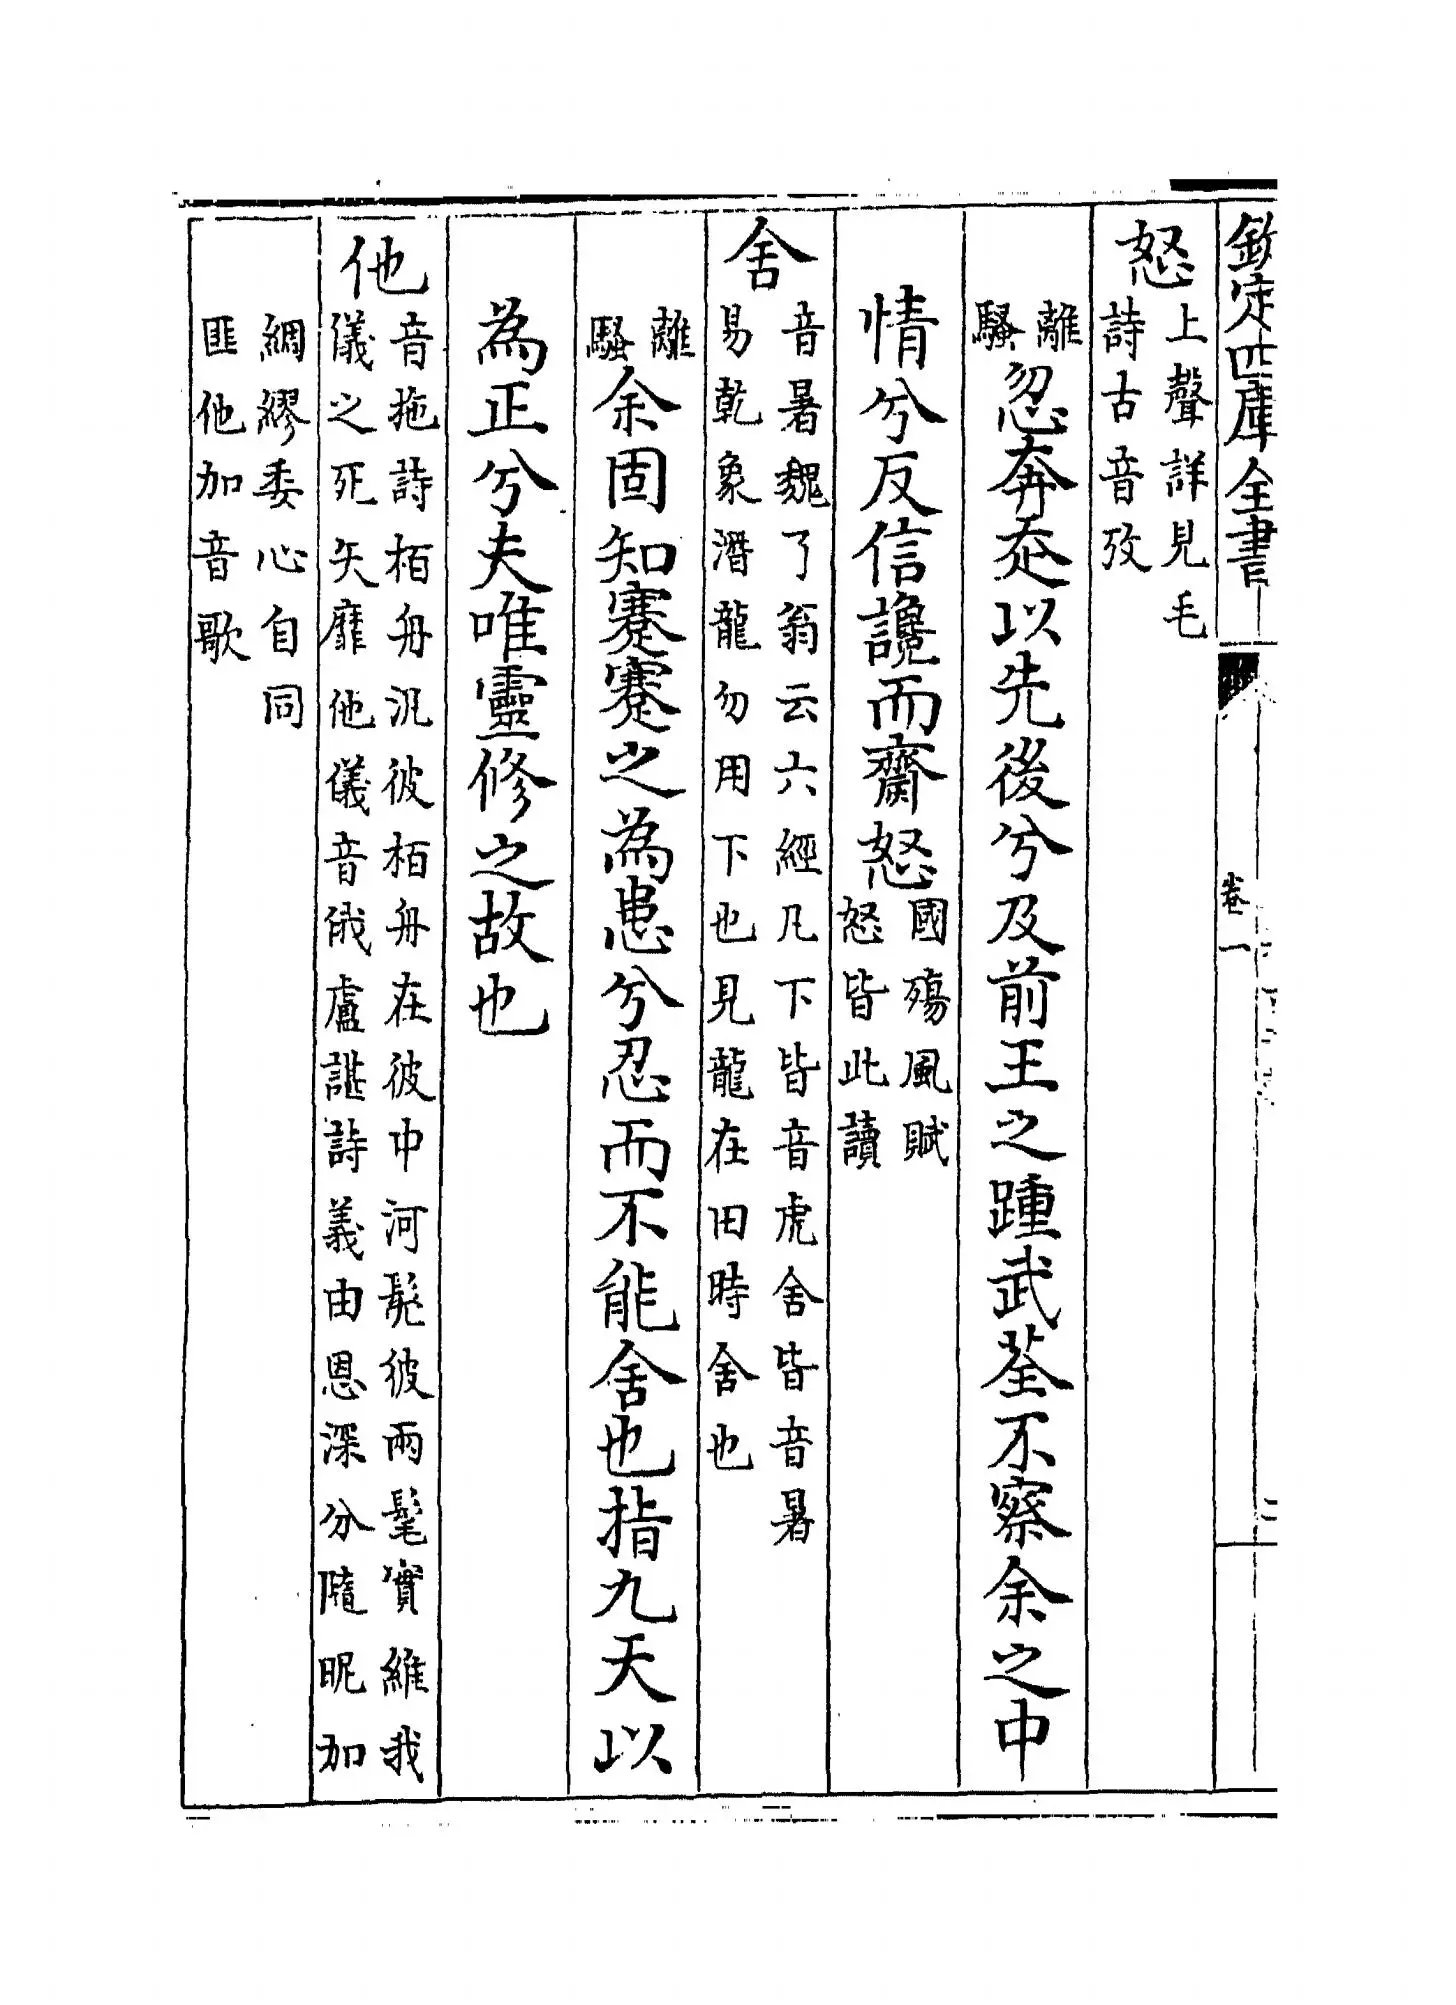 欽定四庫全書
卷一
怒上聲詳見毛
詩古音攷
離騷忽奔走以先後兮及前王之踵武荃不察余之中
情兮反信讒而齌怒國殤風賦
怒皆此讀
舍音暑魏了翁云六經凡下皆音虎舍皆音暑
易乾象潛龍勿用下也見龍在田時舍也
離騷余固知蹇蹇之為患兮忍而不能舍也指九天以
為正兮夫唯靈修之故也
他音拖詩栢舟汎彼栢舟在彼中河髧彼兩髦實維我
儀之死矢靡他儀音俄盧諶詩義由恩深分隨昵加
綢繆委心自同
匪他加音歌